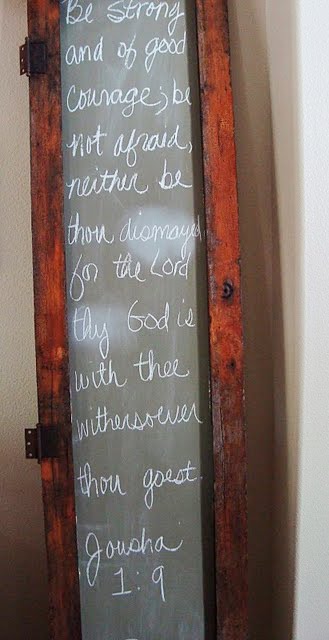 Be strong
and of good
courage; be
not afraid,
neither be
thou dismayed
for the Lord
thy God is
with thee
withersoever
thou goest.
Jousha
1:9